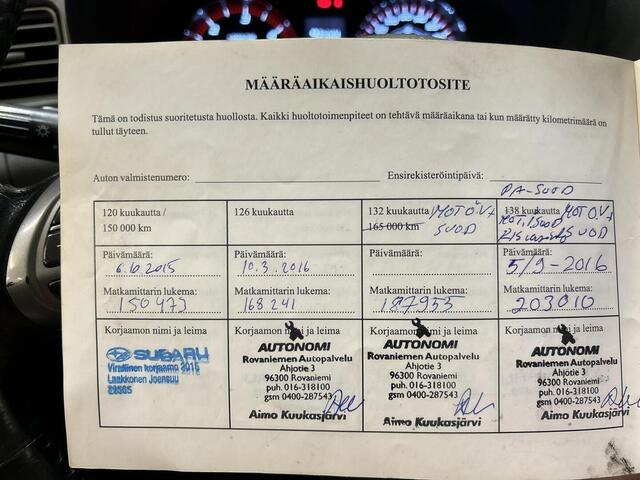 MÄÄRÄAIKAISHUOLTOTOSITE
Tämä on todistus suoritetusta huollosta. Kaikki huoltotoimenpiteet on tehtävä määräaikana tai kun määrätty kilometrimäärä on
tullut täyteen.
Auton valmistenumero: Ensirekisteröintipäivä:
PA-SUOD
120 kuukautta /
150 000 km
126 kuukautta
132 kuukautta MOT ÖV+
165 000 km SUOD
138 kuukautta MOT ÖV+
SUOD
Päivämäärä:
6.10.2015
Matkamittarin lukema:
150 473
Päivämäärä:
10.3.2016
Matkamittarin lukema:
168 241
Päivämäärä:
Matkamittarin lukema:
187955
Päivämäärä:
5/9-2016
Matkamittarin lukema:
203010
Korjaamon nimi ja leima
SUBARU
Virallinen korjaamo 2015
Laakkonen Joensuu
Korjaamon nimi ja leima
AUTONOMI
Rovaniemen Autopalvelu
Ahjotie 3
96300 Rovaniemi
puh. 016-318100
gsm 0400-287543
Aimo Kuukasjärvi
Korjaamon nimi ja leima
AUTONOMI
Rovaniemen Autopalvelu
Ahjotie 3
96300 Rovaniemi
puh. 016-318100
gsm 0400-287543
Aimo Kuukasjärvi
Korjaamon nimi ja leima
AUTONOMI
Rovaniemen Autopalvelu
Ahjotie 3
96300 Rovaniemi
puh. 016-318100
gsm 0400-287543
Aimo Kuukasjärvi